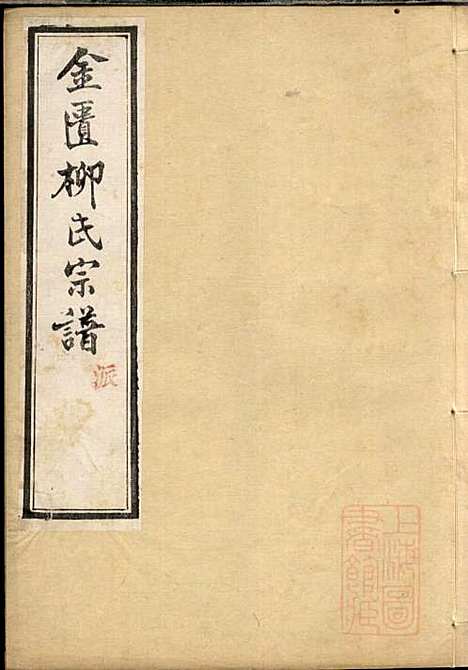 金匱柳氏宗譜
派
上海圖
書館臧